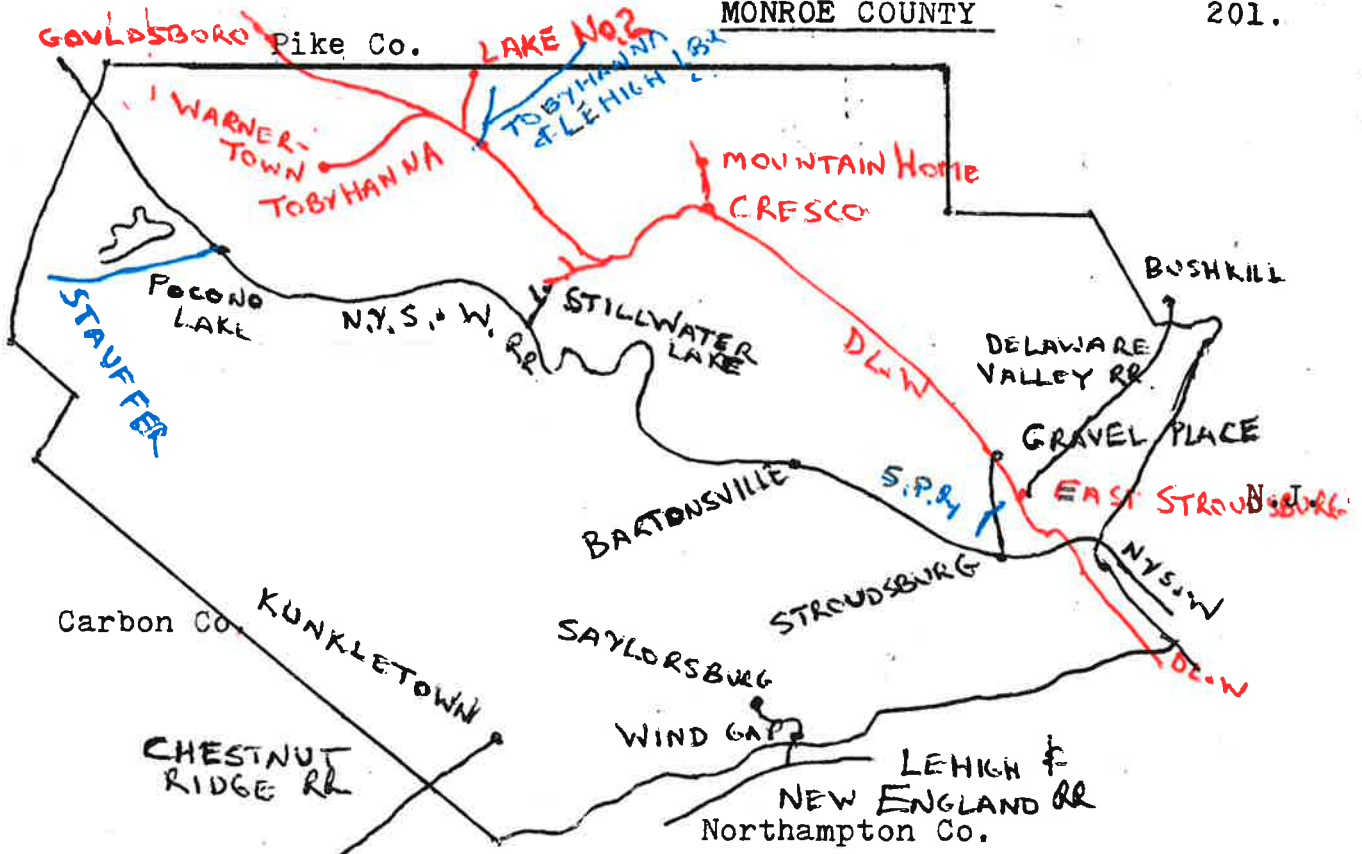 MONROE COUNTY
201.
GOULDSBORO
Pike Co.
LAKE No. 2
TOBYHANNA
& LEHIGH
WARNER-
TOWN
TOBYHANNA
MOUNTAIN Home
CRESCO
BUSHKILL
POCONO
LAKE
STAUFFER
N.Y.S. & W.
RR
STILLWATER
LAKE
DL&W
DELAWARE
VALLEY RR
GRAVEL PLACE
S.P.Ry
EAST STROUDSBURG
N.J.
BARTONSVILLE
STROUDSBURG
NYS&W
DL&W
Carbon Co.
KUNKLETOWN
SAYLORSBURG
WIND GAP
CHESTNUT
RIDGE RR
LEHIGH &
NEW ENGLAND RR
Northampton Co.